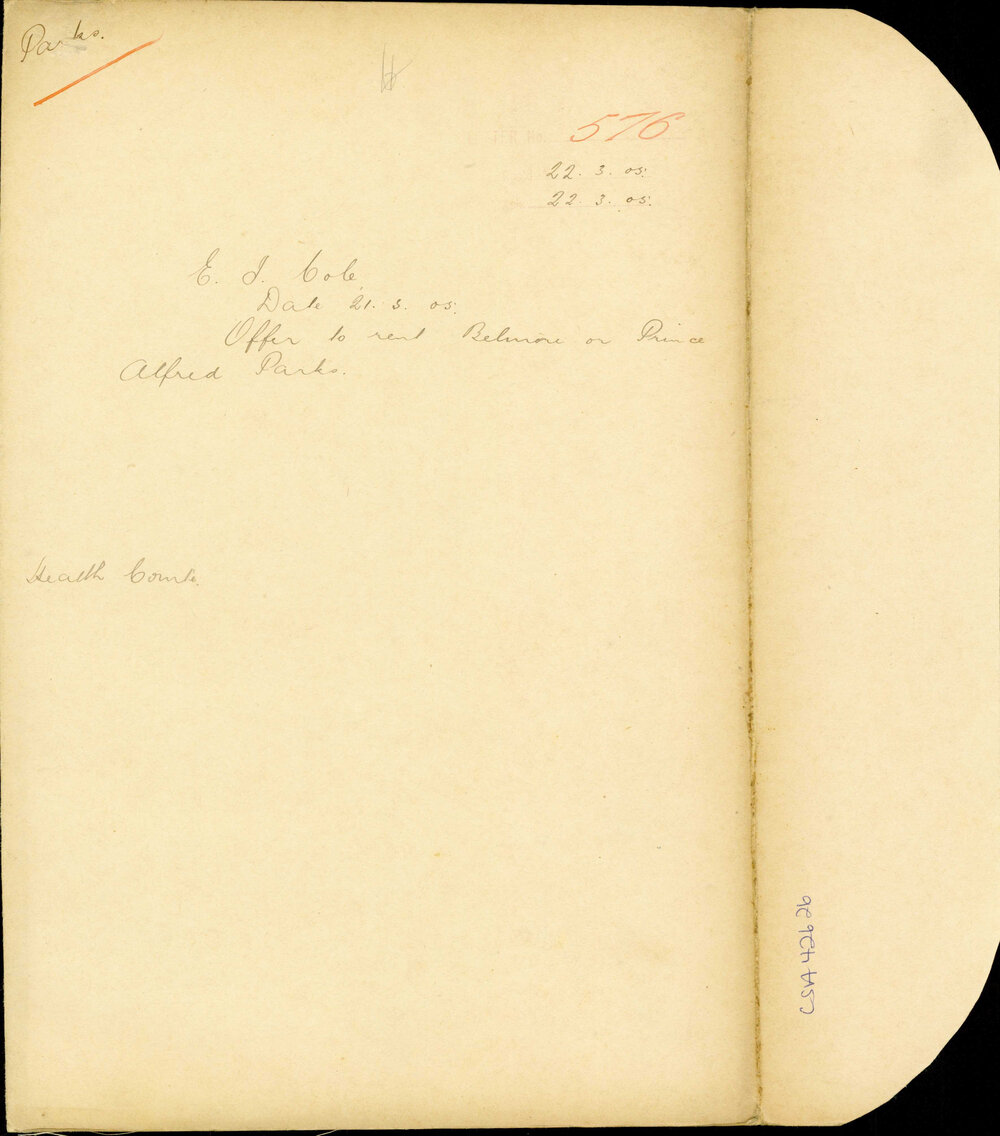 Parks.
576
22. 3. 05.
22. 3. 05.
E. I. Cole
Date 21. 3. 05.
Offer to rent Belmore or Prince
Alfred Parks.
Health Comte.